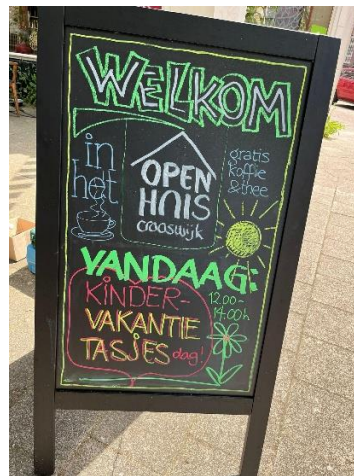 WELKOM
in
het
OPEN
HUIS
crooswijk
gratis
koffie
& thee
VANDAAG:
KINDER-
VAKANTIE
TASJES dag!
12.00-
14.00h